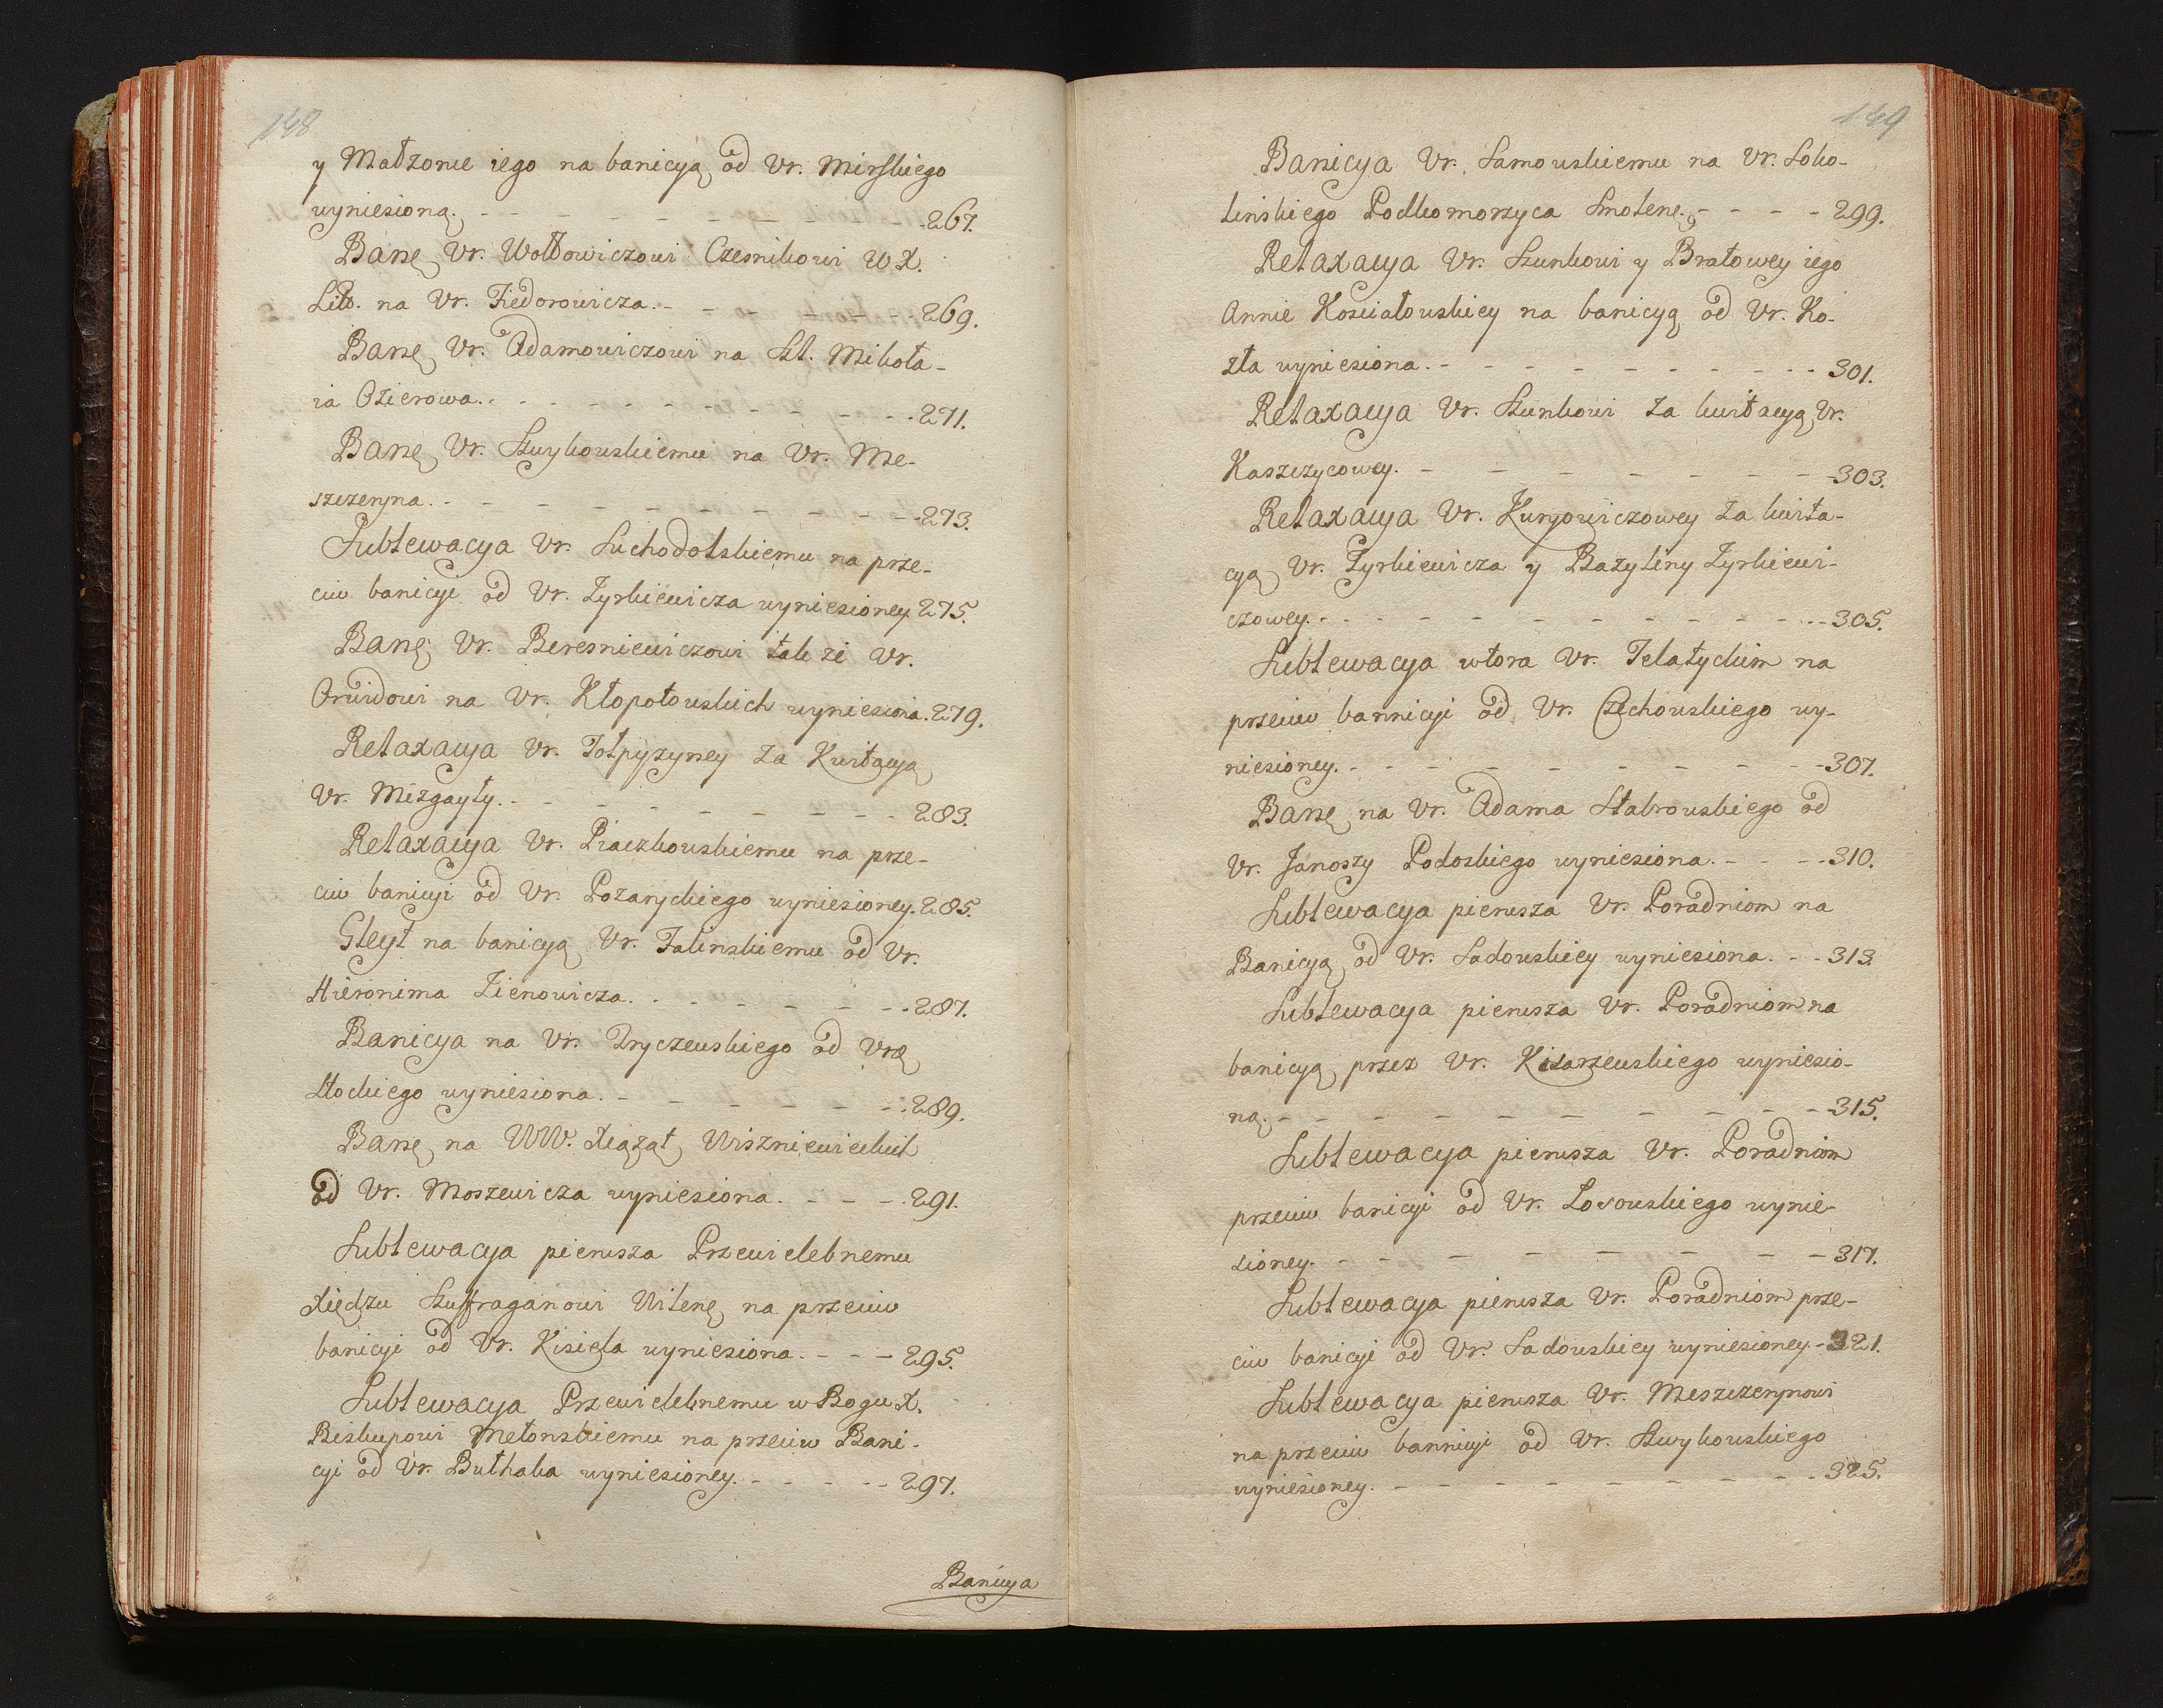 148
y Małzonce iego na banicyą od Ur. Mirskiego
wyniesioną. - - - - - - - - - 267.
Banę Ur. Wołłowiczowi Czesnikowi W X.
Litt. na Ur. Fiedorowicza. - - - - - - 269.
Banę Ur. Adamowiczowi na Szl. Mikoła-
ia Ozierowa. - - - - - - - - - 271.
Banę Ur. Szwykouskiemu na Ur. Me-
szczeryna. - - - - - - - - - 273.
Sublewacya Ur. Suchodolskiemu na prze-
ciw banicyi od Ur. Zyrkiewicza wyniesioney. 275.
Banę Ur. Beresniewiczowi także Ur.
Orwidowi na Ur. Kłopotouskich wyniesiona. 279.
Relaxacya Ur. Tołpyżyney za Kwitacyą
Ur. Mizgayły. - - - - - - - - 283.
Relaxacya Ur. Piaczkouskiemu na prze-
ciw banicyi od Ur. Pozaryckiego wyniesioney. 285.
Gleyt na banicyą Ur. Falinskiemu od Ur.
Hieronima Zienowicza. - - - - - - 287.
Banicya na Ur. Tryczewskiego od Urę
Słockiego wyniesiona. - - - - - - 289.
Banę na WW. Xiążąt Wiszniewieckich
od Ur. Moszewicza wyniesiona. - - - - 291.
Sublewacya pierwsza Przewielebnemu
Xiędzu Szuffraganowi Wilenę na przeciw
banicyi od Ur. Kisiela wyniesiona. - - - 295.
Sublewacya Przewielebnemu w Bogu X.
Biskupowi Metonskiemu na przeciw Bani-
cyi od Ur. Buthaka wyniesioney. - - - - - 297.
Banicya
149
Banicya Ur. Samouskiemu na Ur. Soko-
linskiego Podkomorzyca Smolenę. - - - - 299.
Relaxacya Ur. Szunkowi y Bratowey iego
Annie Kosciałouskiey na banicyą od Ur. Ko-
zła wyniesiona. - - - - - - - - 301.
Relaxacya Ur. Szunkowi za kwitacyą Ur.
Kaszczycowey. - - - - - - - - 303.
Relaxacya Ur. Kunyowiczowey za kwita-
cyą Ur. Zyrkiewicza y Bazyliny Zyrkiewi-
czowey. - - - - - - - - - - 305.
Sublewacya wtora Ur. Telatyckim na
przeciw bannicyi od Ur. Czechouskiego wy-
niesioney. - - - - - - - - - 307.
Banę na Ur. Adama Stabrouskiego od
Ur. Janoszy Podoskiego wyniesiona. - - - - 310.
Sublewacya pierwsza Ur. Poradniom na
Banicyą od Ur. Sadouskiey wyniesiona. - - 313.
Sublewacya pierwsza Ur. Poradniom na
banicyą przez Ur. Kisarzeuskiego wyniesio-
ną. - - - - - - - - - - 315.
Sublewacya pierwsza Ur. Poradniom
przeciw banicyi od Ur. Losouskiego wynie-
sioney. - - - - - - - - - 317.
Sublewacya pierwsza Ur. Poradniom prze-
ciw banicyi od Ur. Sadouskiey wyniesioney. - 321.
Sublewacya pierwsza Ur. Meszczerynowi
na przeciw bannicyi od Ur. Szwykouskiego
wyniesioney. - - - - - - - - - 325.